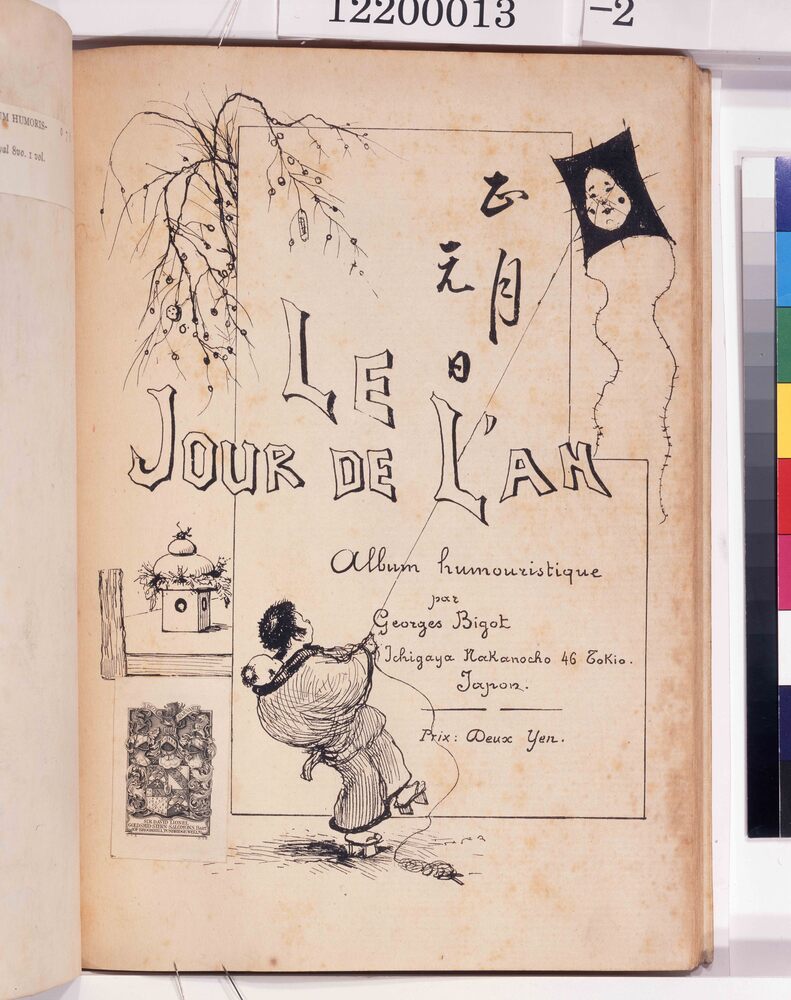 12200013
-2
UM HUMORIS-
val 8vo. 1 vol.
正月
元日
LE
JOUR DE L'AN
Album humouristique
par
Georges Bigot
Ichigaya Nakanocho 46 Tokio.
Japon.
Prix: Deux Yen.
SIR DAVID LIONEL
GOLDSMID-STERN-SALOMONS, BART
OF BROOMHILL, TUNBRIDGE WELLS